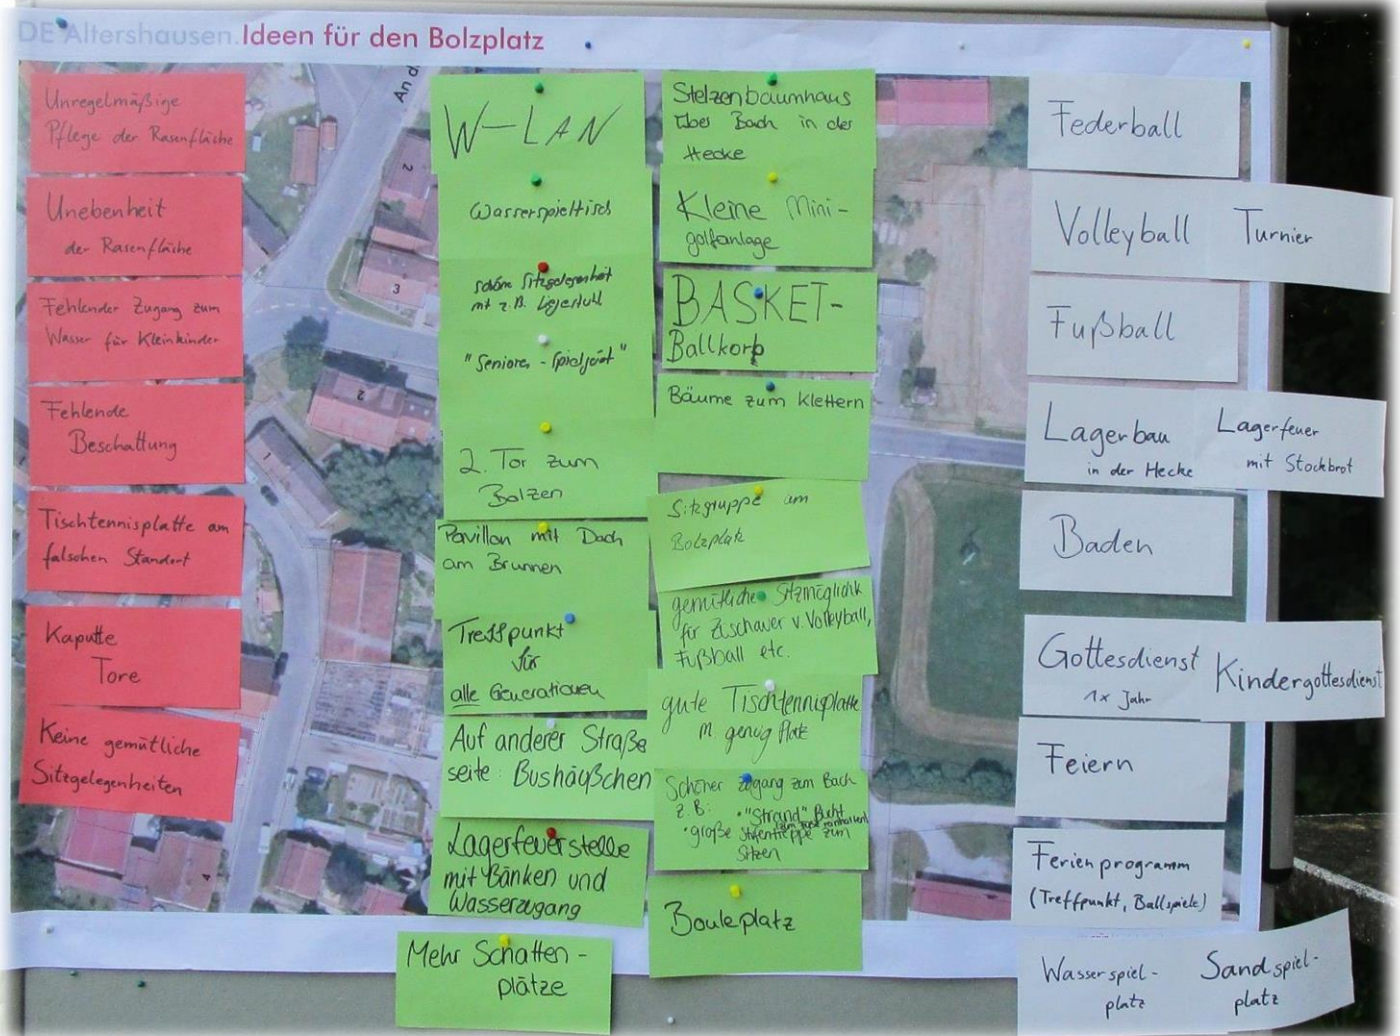 DE Altershausen.Ideen für den Bolzplatz
Unregelmäßige
Pflege der Rasenfläche
Unebenheit
der Rasenfläche
Fehlender Zugang zum
Wasser für Kleinkinder
Fehlende
Beschattung
Tischtennisplatte am
falschen Standort
Kaputte
Tore
Keine gemütliche
Sitzgelegenheiten
An d
2
3
2
1
4
W-LAN
Wasserspieltisch
schöne Sitzgelegenheit
mit z.B. Liegestuhl
"Senioren-Spielgerät"
2. Tor zum
Bolzen
Pavillon mit Dach
am Brunnen
Treffpunkt
für
alle Generationen
Auf anderer Straße
seite: Bushäußchen
Lagerfeuerstelle
mit Bänken und
Wasserzugang
Mehr Schatten-
plätze
Stelzenbaumhaus
über Bach in der
Hecke
Kleine Mini-
golfanlage
BASKET-
Ballkorb
Bäume zum Klettern
Sitzgruppe am
Bolzplatz
gemütliche Sitzmöglichk
für Zuschauer v. Volleyball,
Fußball etc.
gute Tischtennisplatte
m. genug Platz
Schöner Zugang zum Bach
z.B: • "Strand" Bucht
• große Stufentreppe zum
Sitzen
Bouleplatz
Federball
Volleyball Turnier
Fußball
Lagerbau
in der Hecke
Lagerfeuer
mit Stockbrot
Baden
Gottesdienst
1x Jahr
Kindergottesdienst
Feiern
Ferienprogramm
(Treffpunkt, Ballspiele)
Wasserspiel-
platz
Sandspiel-
platz